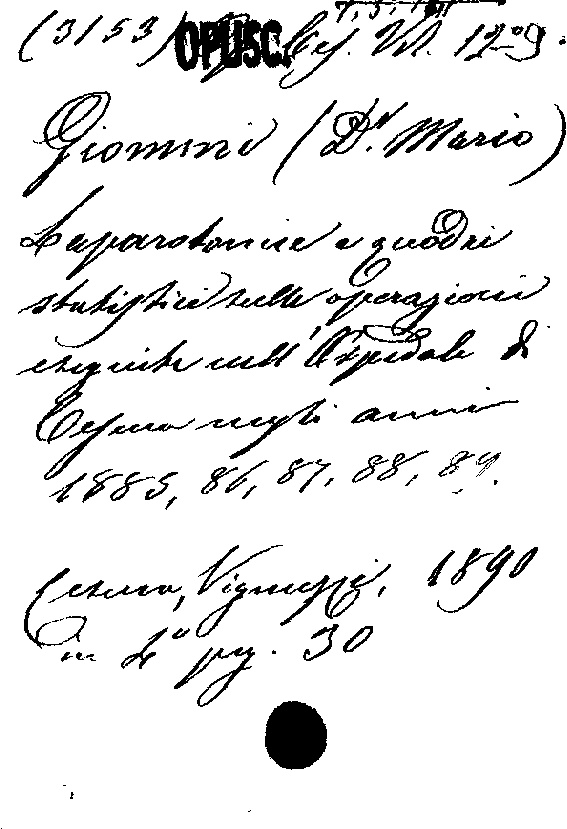 (3153) OPUSC. Ces. VI. 129.
Giommi (Dr. Mario)
Laparotomie e quadri
statistici sulle operazioni
eseguite nell'Ospedale di
Cesena negli anni
1885, 86, 87, 88, 89.
Cesena, Vignuzzi, 1890
in 4° pag. 30